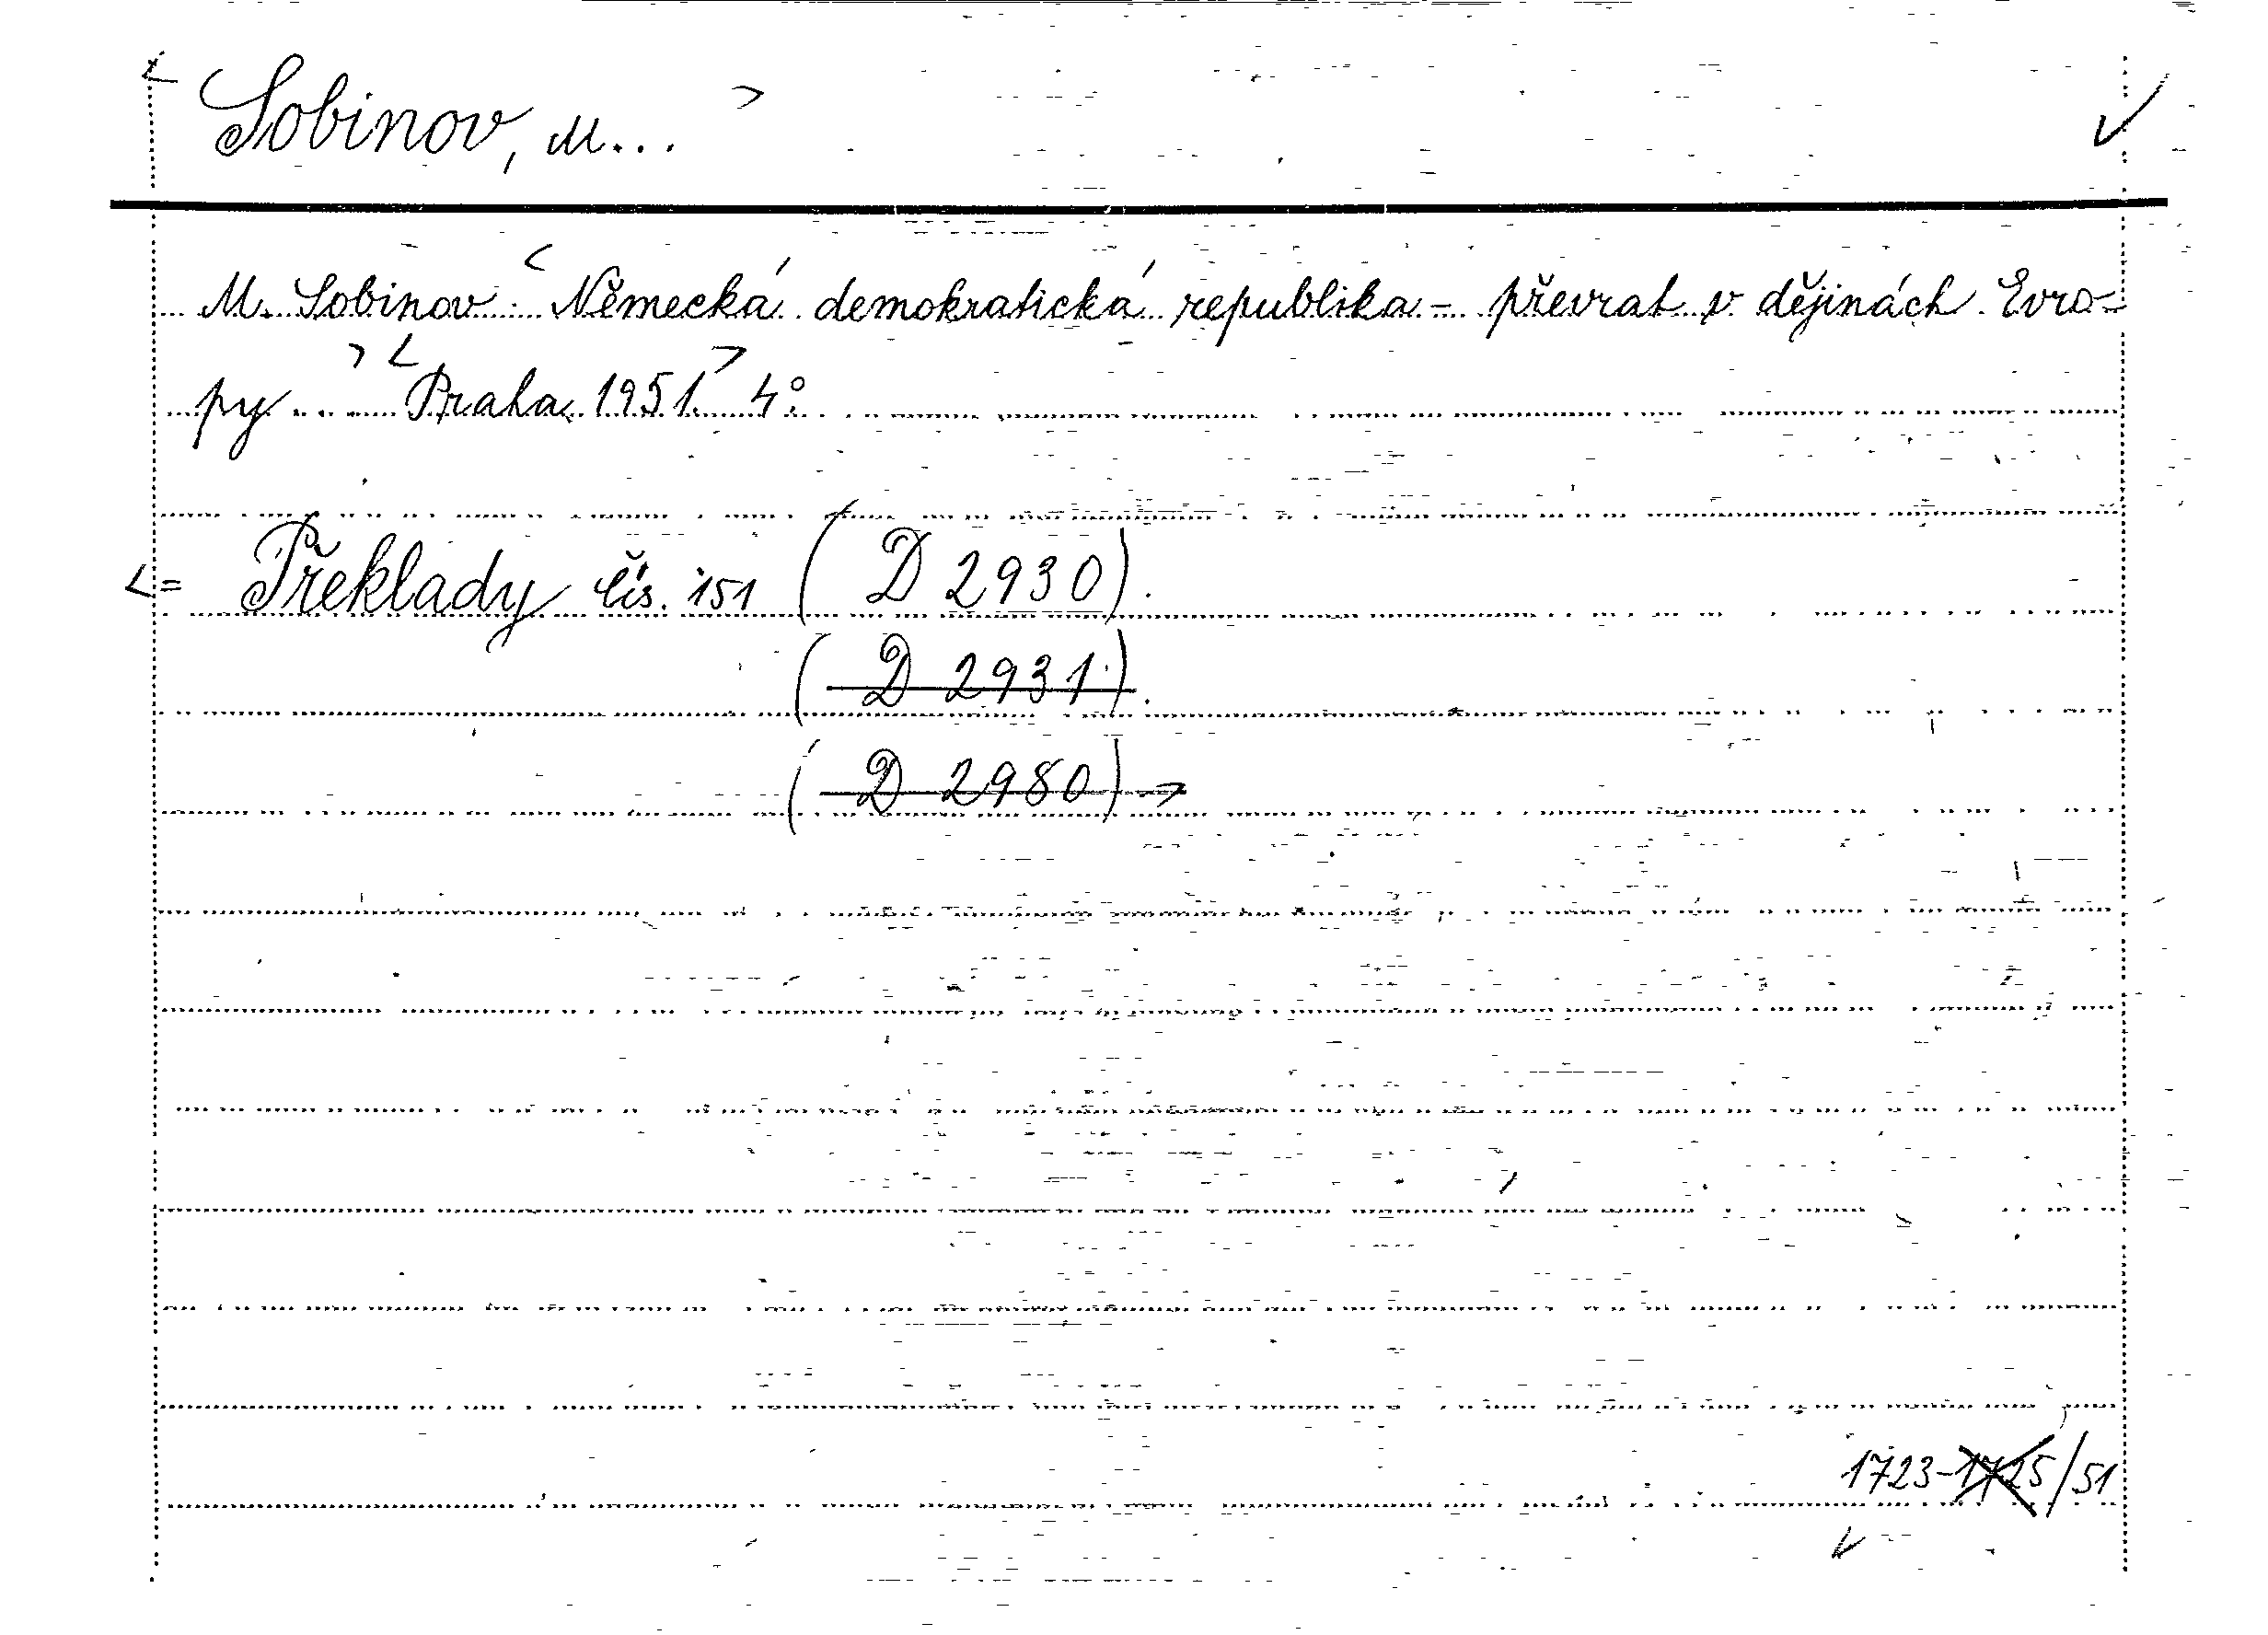 Sobinov, M...
M. Sobinov: Německá demokratická republika - převrat v dějinách Evro-
py ... Praha 1951 4°.
= Překlady čís. 151 (D 2930).
(D 2931).
(D 2980)
1723-1725/51